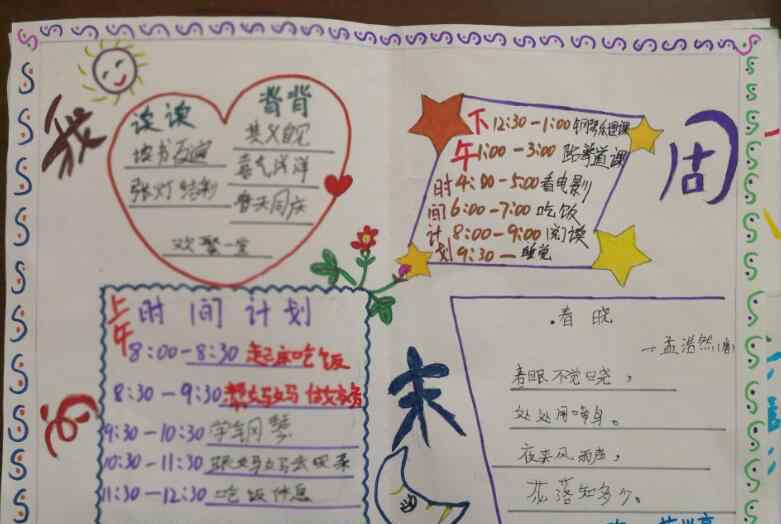 我
周
的
末
读读 背背
其义自见
喜气洋洋
张灯结彩
普天同庆
欢聚一堂
下 12:30-1:00
午 1:00-3:00 跆拳道课
时 4:00-5:00 看电影
间 6:00-7:00 吃饭
计 8:00-9:00 阅读
划 9:30- 睡觉
上午
时间计划
8:00-8:30 起床吃饭
8:30-9:30 帮妈妈做家务
9:30-10:30 学钢琴
10:30-11:30 跟妈妈去买菜
11:30-12:30 吃饭休息
.春晓
一孟浩然(唐)
春眠不觉晓,
处处闻啼鸟。
夜来风雨声,
花落知多少。